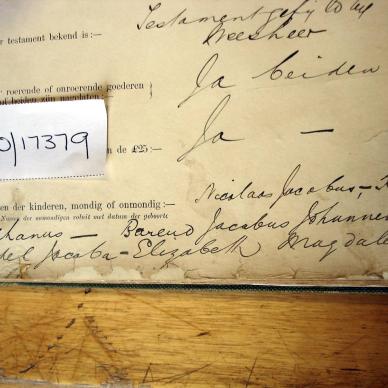 Testament
r testament bekend is:— Weesheer
r roerende of onroerende goederen
of beiden zijn nagelaten:— Ja beiden
0/17379
n de £25:— Ja —
en der kinderen, mondig of onmondig:— Nicolaas Jacobus—
Namen der onmondigen voluit met datum der geboorte
hanus — Barend Jacobus Johannes
del Jacoba - Elizabeth Magdale